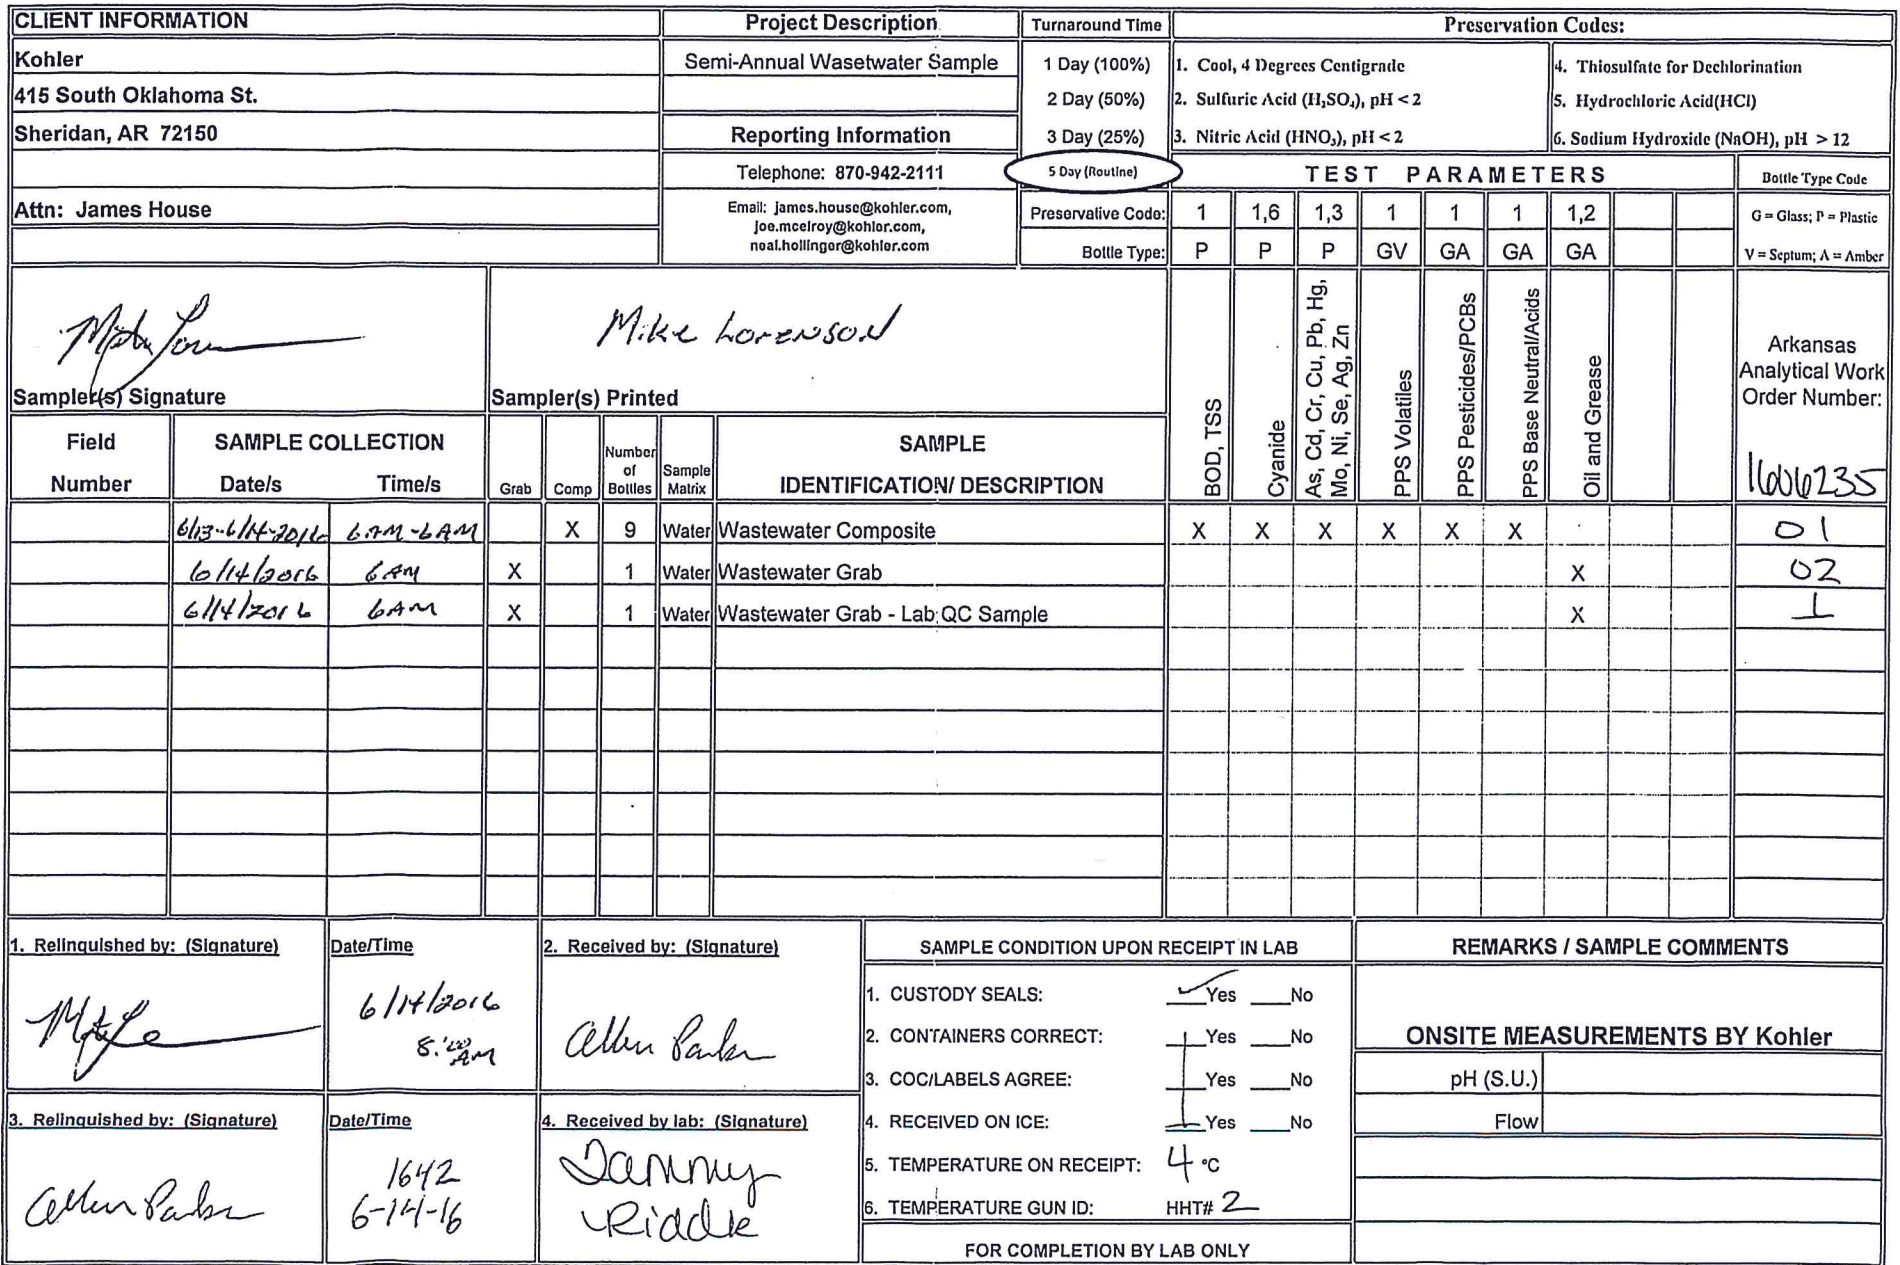 CLIENT INFORMATION
Kohler
415 South Oklahoma St.
Sheridan, AR 72150
Attn: James House
Project Description
Semi-Annual Wasetwater Sample
Reporting Information
Telephone: 870-942-2111
Email: james.house@kohler.com,
joe.mcelroy@kohler.com,
neal.hollinger@kohler.com
Turnaround Time
1 Day (100%)
2 Day (50%)
3 Day (25%)
5 Day (Routine)
Preservation Codes:
1. Cool, 4 Degrees Centigrade
2. Sulfuric Acid (H₂SO₄), pH < 2
3. Nitric Acid (HNO₃), pH < 2
4. Thiosulfate for Dechlorination
5. Hydrochloric Acid(HCl)
6. Sodium Hydroxide (NaOH), pH > 12
TEST PARAMETERS
Bottle Type Code
Preservative Code: 1 1,6 1,3 1 1 1 1,2
G = Glass; P = Plastic
Bottle Type: P P P GV GA GA GA
V = Septum; A = Amber
Sampler(s) Signature
Mike Lorenson
Sampler(s) Printed
BOD, TSS
Cyanide
As, Cd, Cr, Cu, Pb, Hg,
Mo, Ni, Se, Ag, Zn
PPS Volatiles
PPS Pesticides/PCBs
PPS Base Neutral/Acids
Oil and Grease
Arkansas
Analytical Work
Order Number:
1606235
Field
Number
SAMPLE COLLECTION
Date/s Time/s
Grab
Comp
Number
of
Bottles
Sample
Matrix
SAMPLE
IDENTIFICATION/ DESCRIPTION
6/13-6/14-2016 6AM-6AM X 9 Water Wastewater Composite X X X X X X 01
6/14/2016 6AM X 1 Water Wastewater Grab X 02
6/14/2016 6AM X 1 Water Wastewater Grab - Lab QC Sample X
1. Relinquished by: (Signature)
Date/Time
6/14/2016
8:20 AM
2. Received by: (Signature)
Allen Parker
3. Relinquished by: (Signature)
Allen Parker
Date/Time
1642
6-14-16
4. Received by lab: (Signature)
Tammy
Riddle
SAMPLE CONDITION UPON RECEIPT IN LAB
1. CUSTODY SEALS: Yes No
2. CONTAINERS CORRECT: Yes No
3. COC/LABELS AGREE: Yes No
4. RECEIVED ON ICE: Yes No
5. TEMPERATURE ON RECEIPT: 4 °C
6. TEMPERATURE GUN ID: HHT# 2
FOR COMPLETION BY LAB ONLY
REMARKS / SAMPLE COMMENTS
ONSITE MEASUREMENTS BY Kohler
pH (S.U.)
Flow